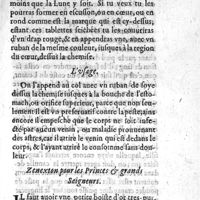 moins que la Lune y soit. Si tu veux tu les
pourras former en escusson, ou en cœur, ou en
rond comme est la marque qui est cy-dessus,
estant ces tablettes seichées tu les couuriras
d'vn drap rouge, & en appendras vne, auec vn
ruban de la mesme couleur, iusques à la region
du cœur, dessus la chemise.
L'vsage.
On l'append au col auec vn ruban de soye
dessus la chemise iusques à la bouche de l'esto-
mach, ou orifice superieur, parce que non seu-
lement il est preseruatif contre la peste, ains
encore il empesche que le corps ne soit infe-
cté par aucun venin, ou maladie prouenante
des astres, car il attire le venin qui est dans le
corps, & l'ayant attiré le consomme sans dou-
leur.
Zenexton pour les Princes & grands
Seigneurs.
IL faut auoir vne petite boiste d'or tres-pur,